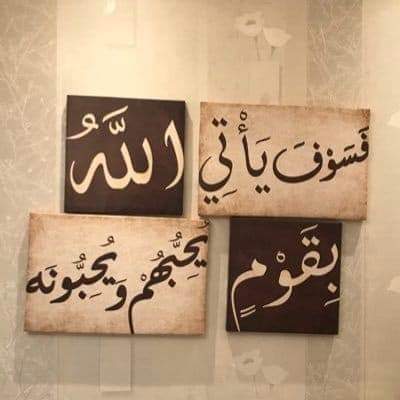 فَسَوْفَ يَأْتِي اللَّهُ
بِقَوْمٍ يُحِبُّهُمْ وَيُحِبُّونَه